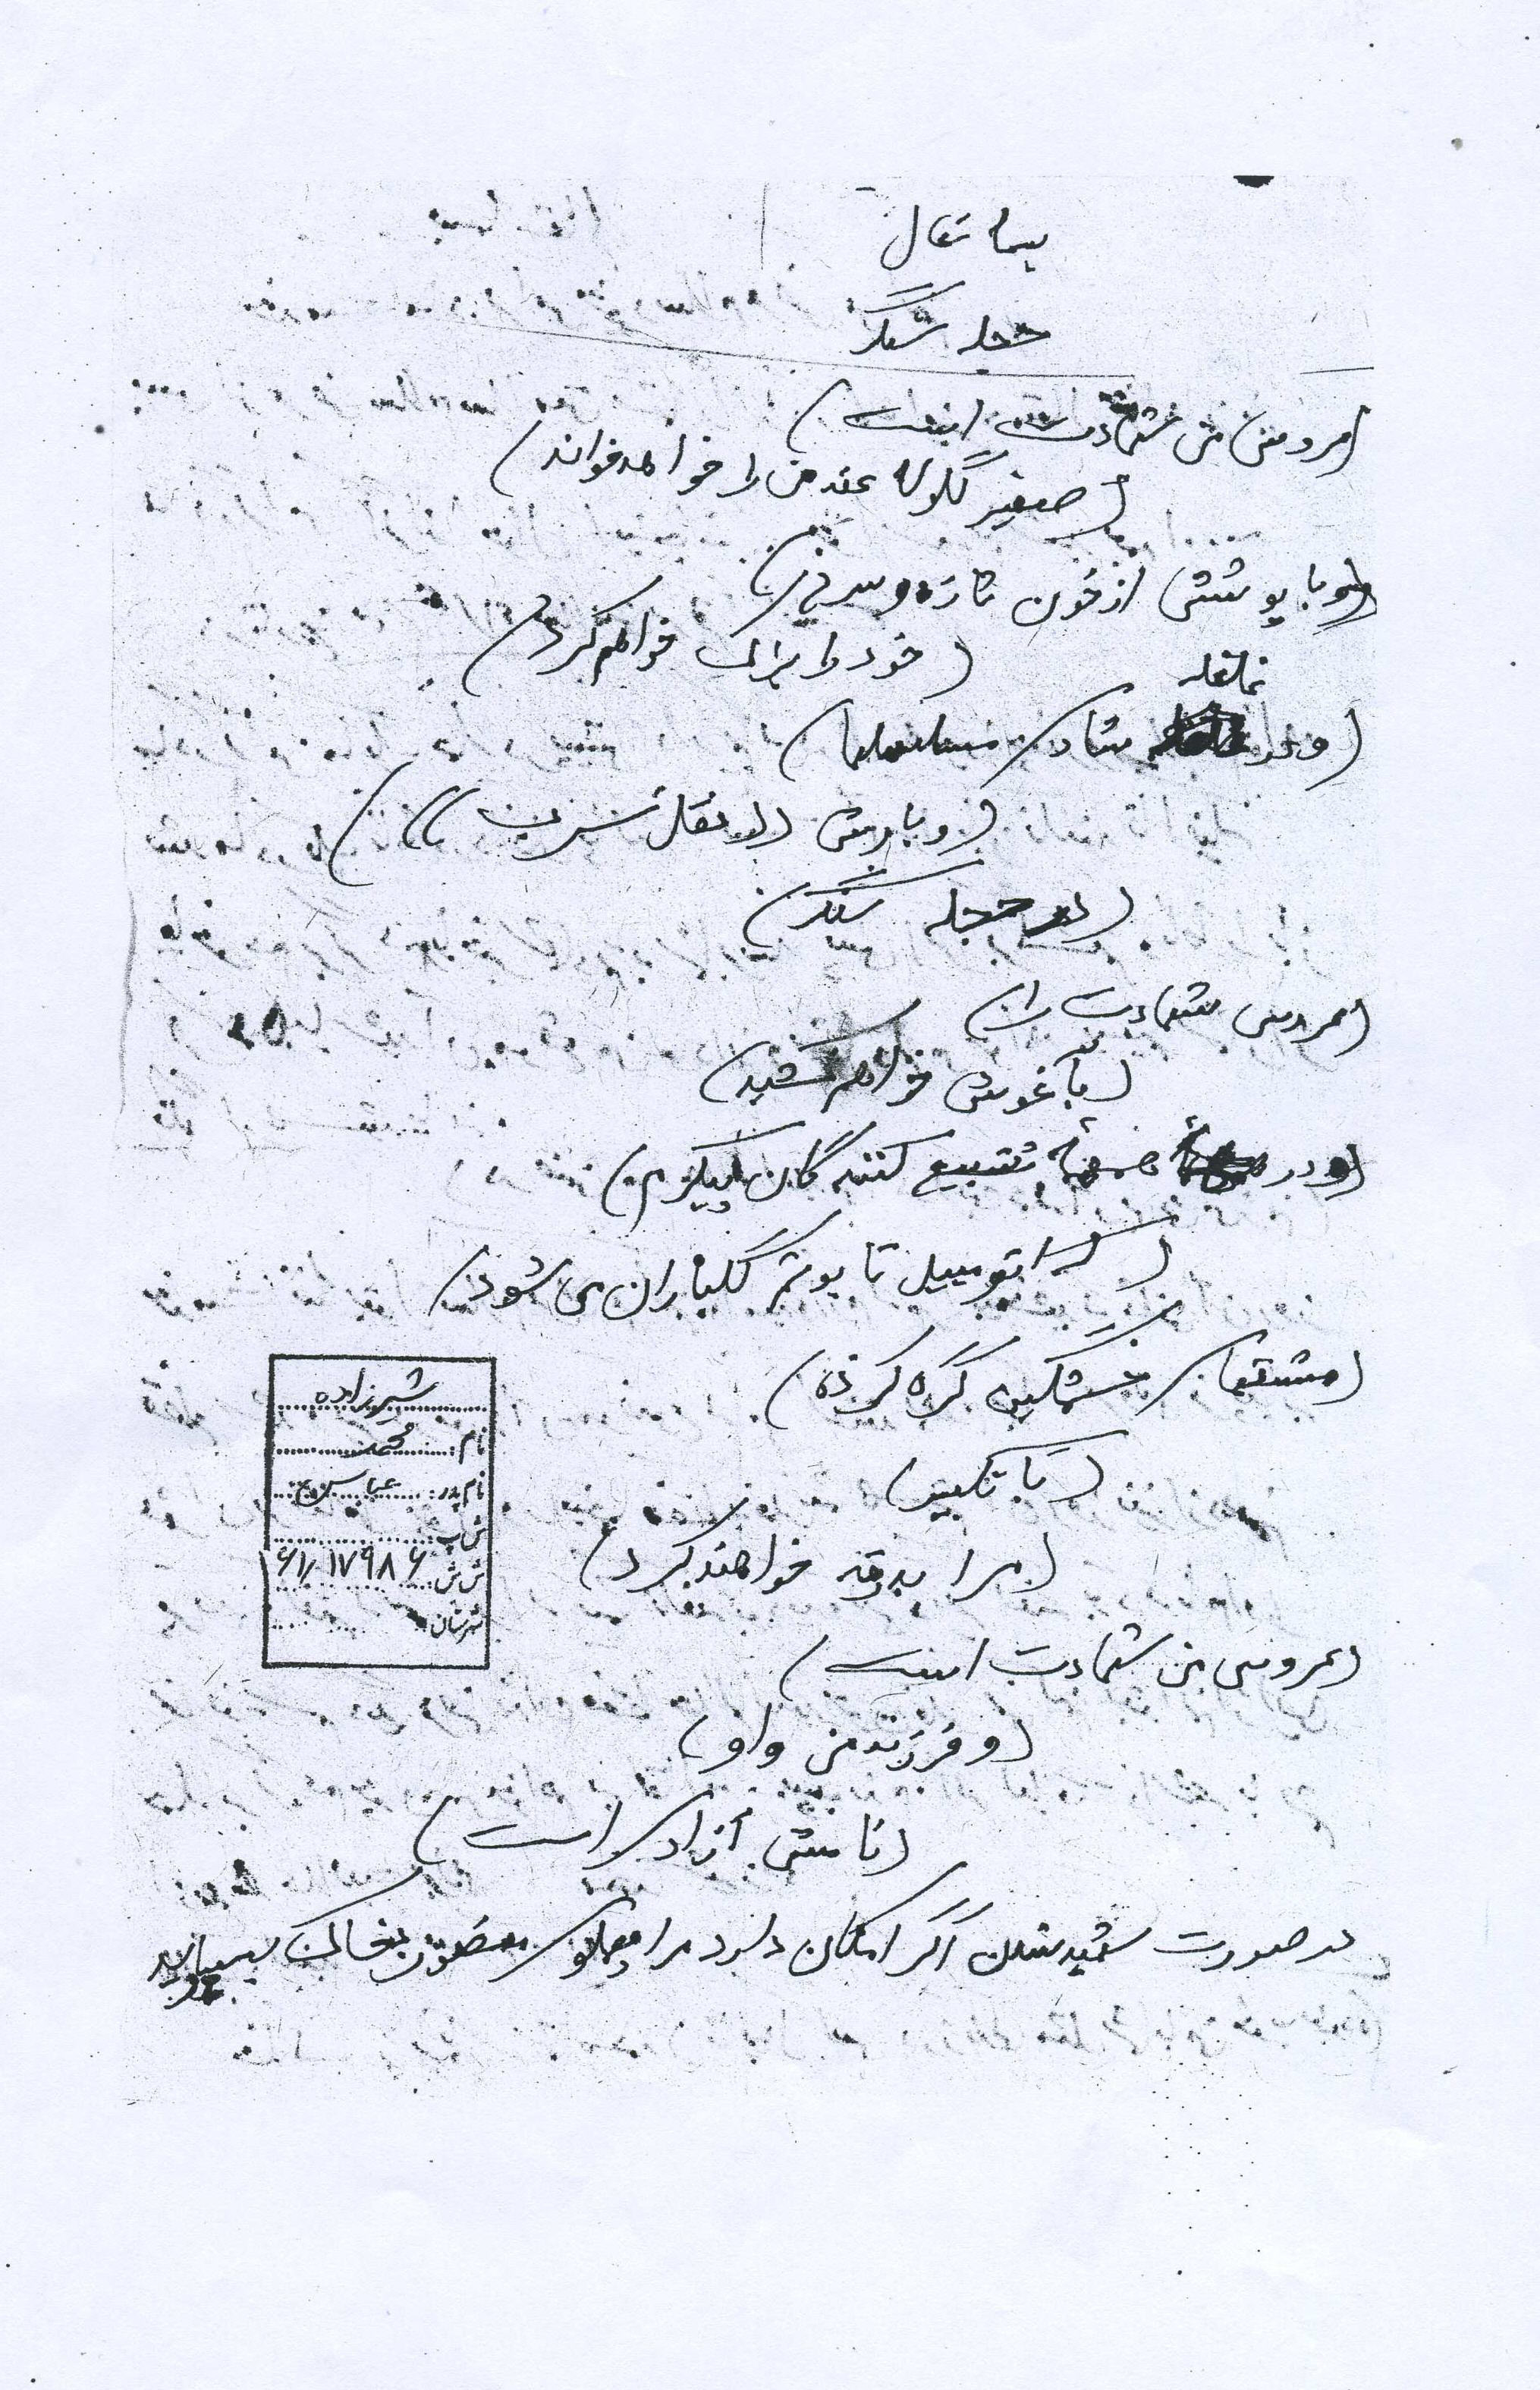 بسمه تعالی
حجله سنگر
(عروس من شهادت است)
(صفیر گلوله عقد من را خواهد خواند)
(و با پوششی از خون تازه و سرخ)
(خود را آرایش خواهم کرد)
(و در غلغله شادی مسلسلها)
(و بارش نقل سربی)
(در حجله سنگر)
(عروس شهادت را)
(بآغوش خواهم کشید)
(و در تشییع کننده گان پیکرم)
(که اتومبیل تابوتم گلباران می شود)
(مشتهای خشمگین گره کرده)
(با تکبیر)
(مرا بدرقه خواهند کرد)
(عروس من شهادت است)
(و فرزند من و او)
(نامش آزادی است)
در صورت شهید شدن اگر امکان دارد مرا پهلوی بخاک بسپارید
شیرزاده
نام: محمد
نام پدر: عباس
ش پ:
ش ش: ۶۱/۱۷۹۸۶
شهرستان: